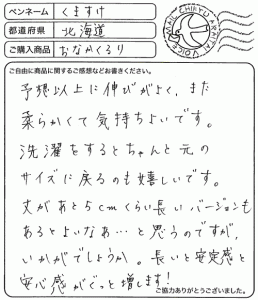 ペンネーム くますけ
都道府県 北海道
ご購入商品 おなかくるり
CHIKYU ARAITAI VOICE MAN
ご自由に商品に関するご感想などお書きください。
予想以上に伸びがよく、また
柔らかくて気持ちよいです。
洗濯をするとちゃんと元の
サイズに戻るのも嬉しいです。
丈があと5cmくらい長いバージョンも
あるとよいなぁ…と思うのですが、
いかがでしょうか。長いと安定感と
安心感がぐっと増します!
ご協力ありがとうございました。